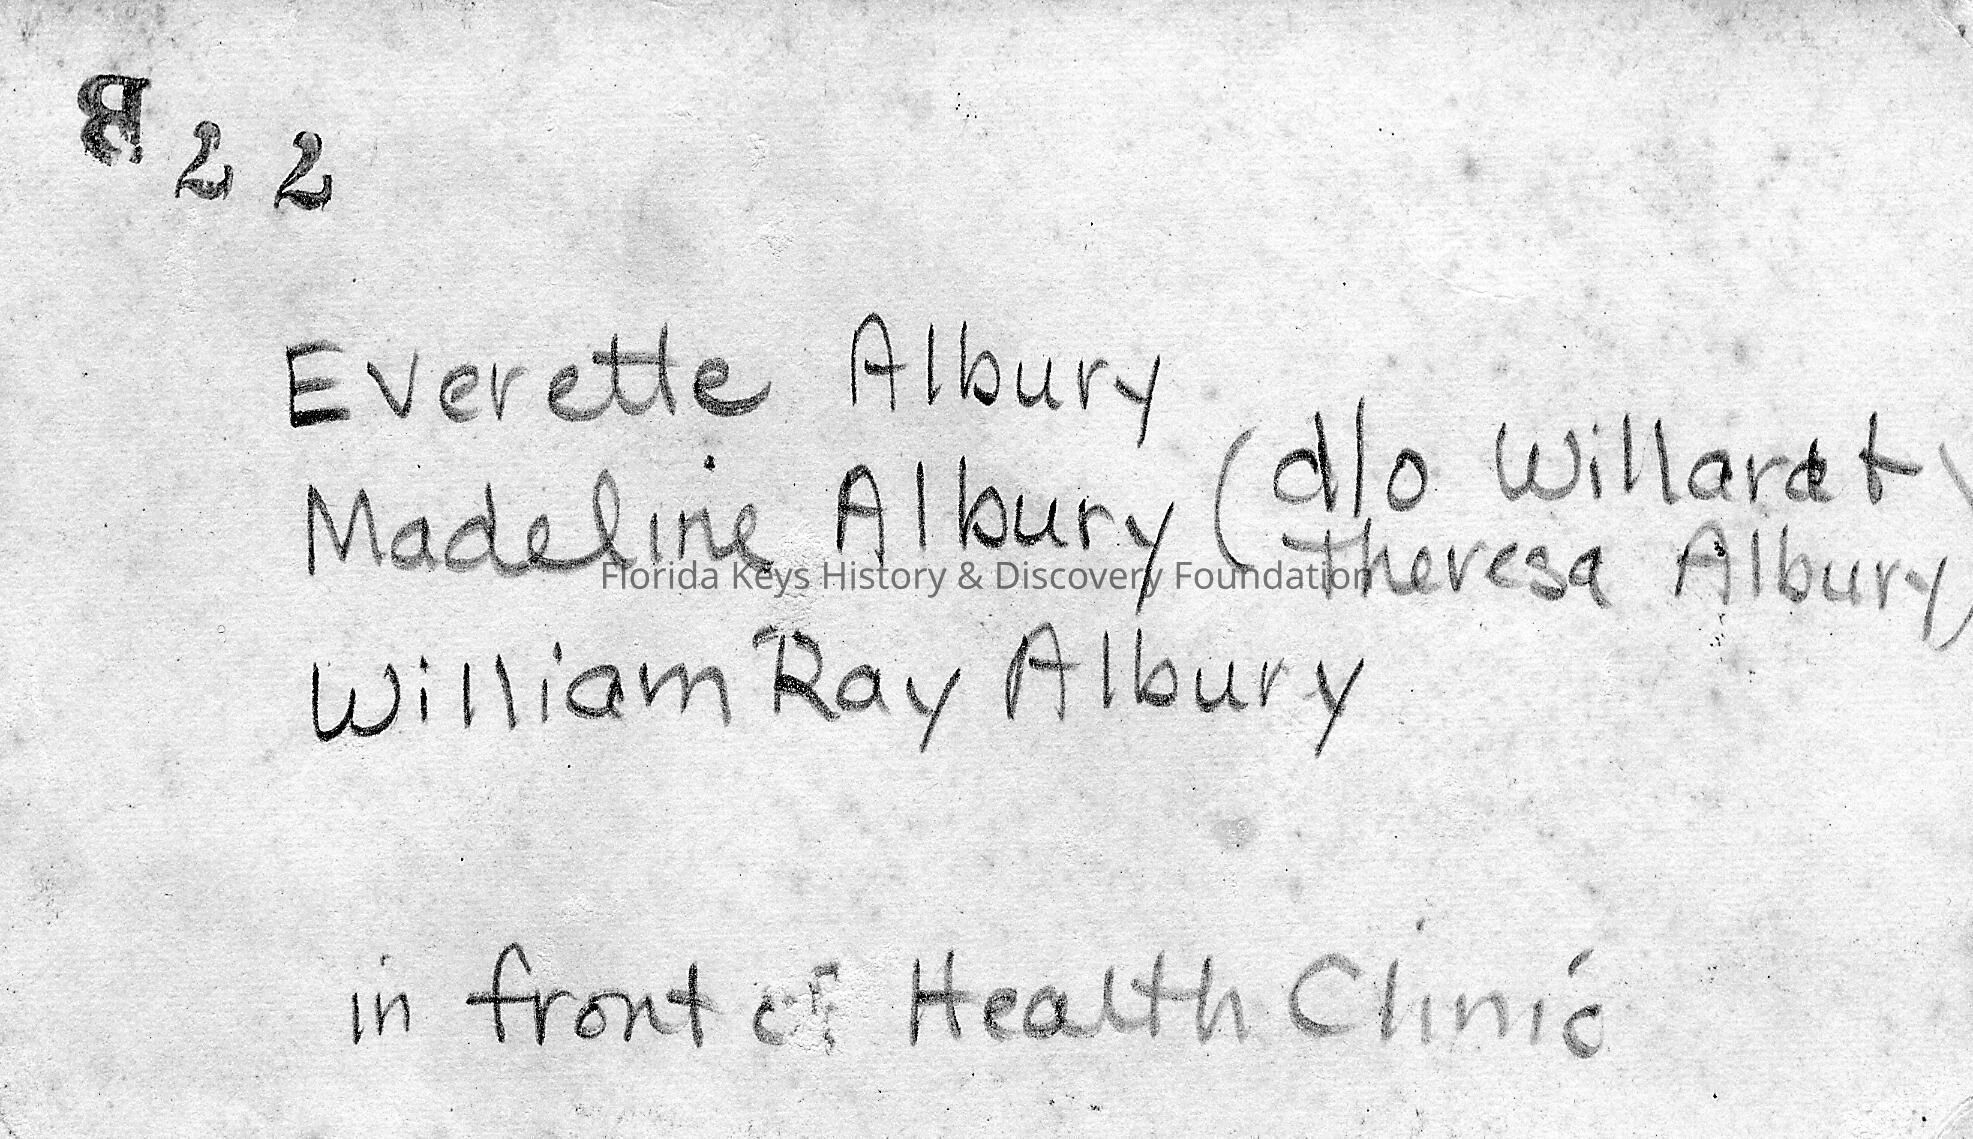 22
Everette Albury
Madeline Albury (d/o Willard +
Theresa Albury)
Florida Keys History & Discovery Foundation
William Ray Albury
in front of Health Clinic